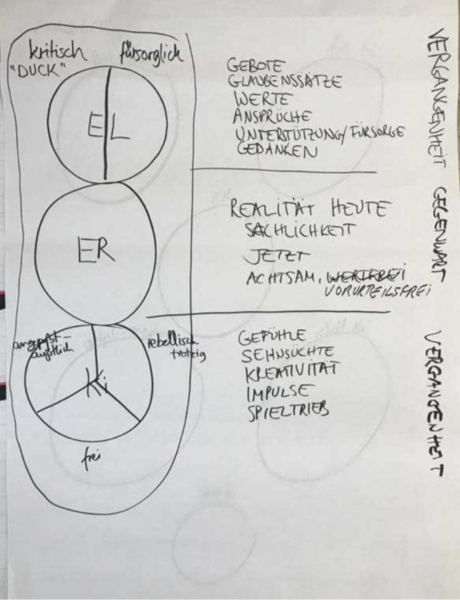 kritisch fürsorglich
"DUCK"
EL
GEBOTE
GLAUBENSSÄTZE
WERTE
ANSPRÜCHE
UNTERSTÜTZUNG/FÜRSORGE
GEDANKEN
VERGANGENHEIT
ER
REALITÄT HEUTE
SACHLICHKEIT
JETZT
ACHTSAM, WERTFREI
VORURTEILSFREI
GEGENWART
angepasst-
ängstlich
rebellisch
trotzig
Ki
frei
GEFÜHLE
SEHNSÜCHTE
KREATIVITÄT
IMPULSE
SPIELTRIEB
VERGANGENHEIT